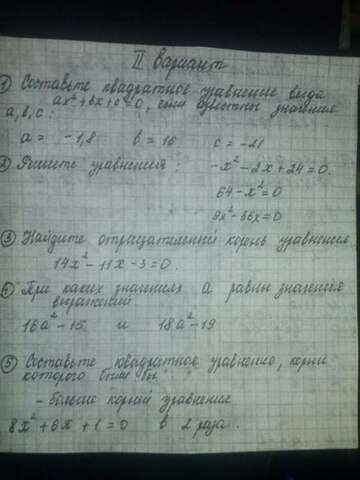 II вариант
① Составьте квадратное уравнение вида
ax²+bx+c=0, если известны значения
a, b, c:
a = -1,8 b = 16 c = -21
② Решите уравнения: -x²-2x+24=0.
64-x²=0
9x²-36x=0
③ Найдите отрицательный корень уравнения
14x²-11x-3=0.
④ При каких значениях a равны значения
выражений
16a²-15 и 18a²-19
⑤ Составьте квадратное уравнение, корни
которого были бы:
- больше корней уравнения
8x²+6x+1=0 в 2 раза.